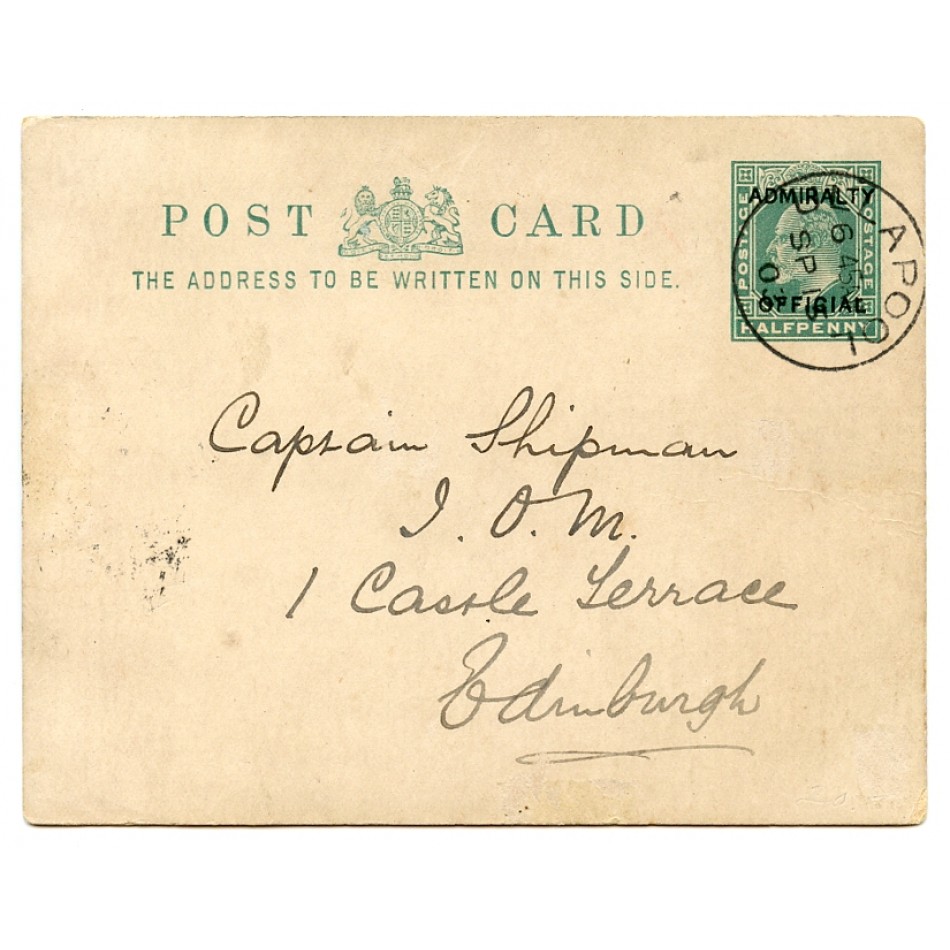 POST CARD
THE ADDRESS TO BE WRITTEN ON THIS SIDE.
ADMIRALTY
OFFICIAL
POSTAGE
POSTAGE
HALFPENNY
APOOL
6 45
SP 15
03
Captain Shipman
I. O. M.
1 Castle Terrace
Edinburgh